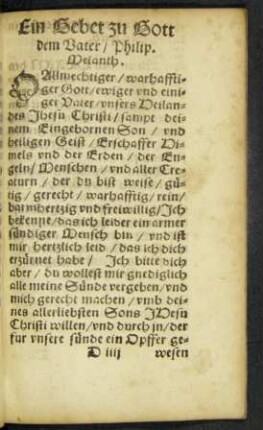 Ein Gebet zu Gott
dem Vater / Philip.
Melanth.
O Allmechtiger / warhaffti-
ger Gott / ewiger vnd eini-
ger Vater / vnsers Heilan-
des Jhesu Christi / sampt dei-
nem Eingebornen Son / vnd
heiligen Geist / Erschaffer Hi-
mels vnd der Erden / der En-
geln / Menschen / vnd aller Cre-
aturn / der du bist weise / gü-
tig / gerecht / warhafftig / rein /
barmhertzig vnd freiwillig / Ich
bekenne / das ich leider ein armer
sündiger Mensch bin / vnd ist
mir hertzlich leid / das ich dich
erzürnet habe / Ich bitte dich
aber / du wollest mir gnediglich
alle meine Sünde vergeben / vnd
mich gerecht machen / vmb dei-
nes allerliebsten Sons Jhesu
Christi willen / vnd durch jn / der
fur vnsere sünde ein Opffer ge-
D iiij wesen